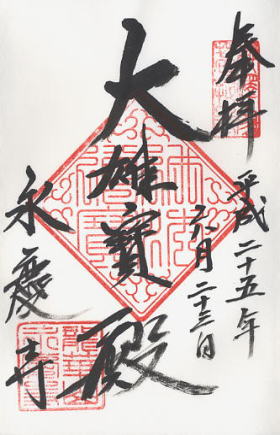 奉拝
平成二十五年
六月二十三日
大雄寶殿
永慶寺